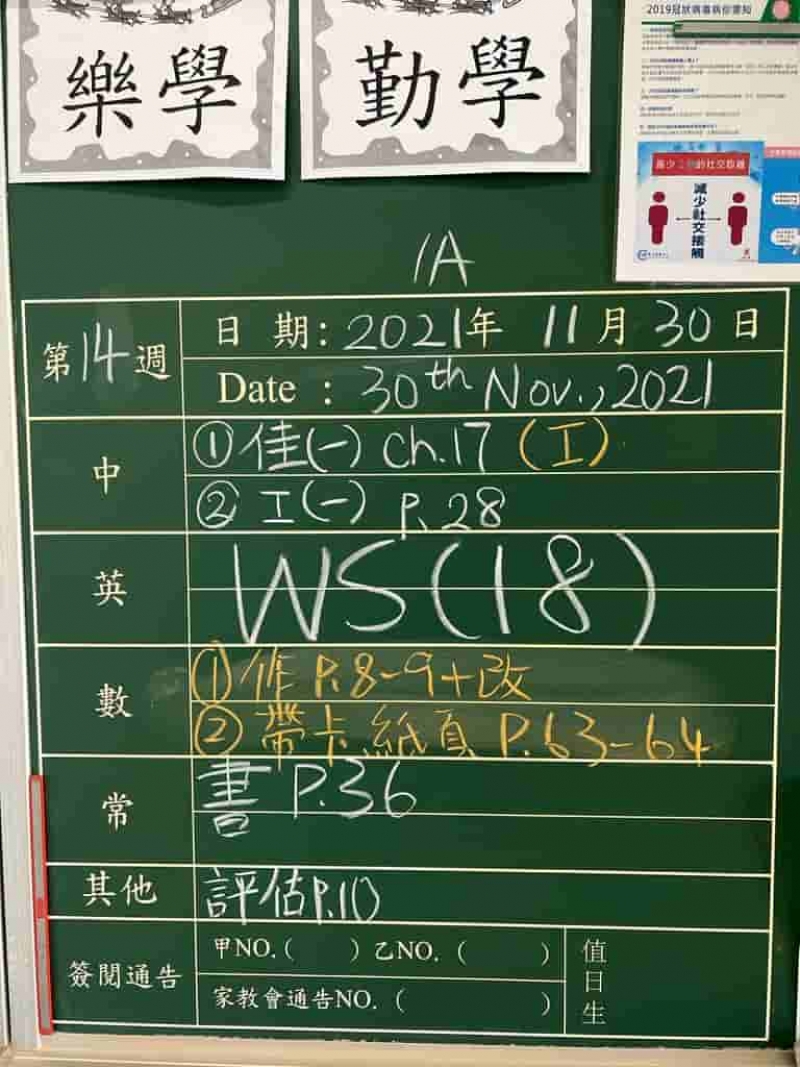 樂學
勤學
2019冠狀病毒病你要知
減少社交接觸
1A
第14週
日 期：2021年 11月 30日
Date : 30th Nov., 2021
中
①佳(一) Ch.17 (工)
② 工(一) P.28
英
WS(18)
數
①作 P.8-9+改
②帶卡紙頁 P.63-64
常
書 P.36
其他
評估P.10
簽閱通告
甲NO.( ) 乙NO. ( )
家教會通告NO. ( )
值日生